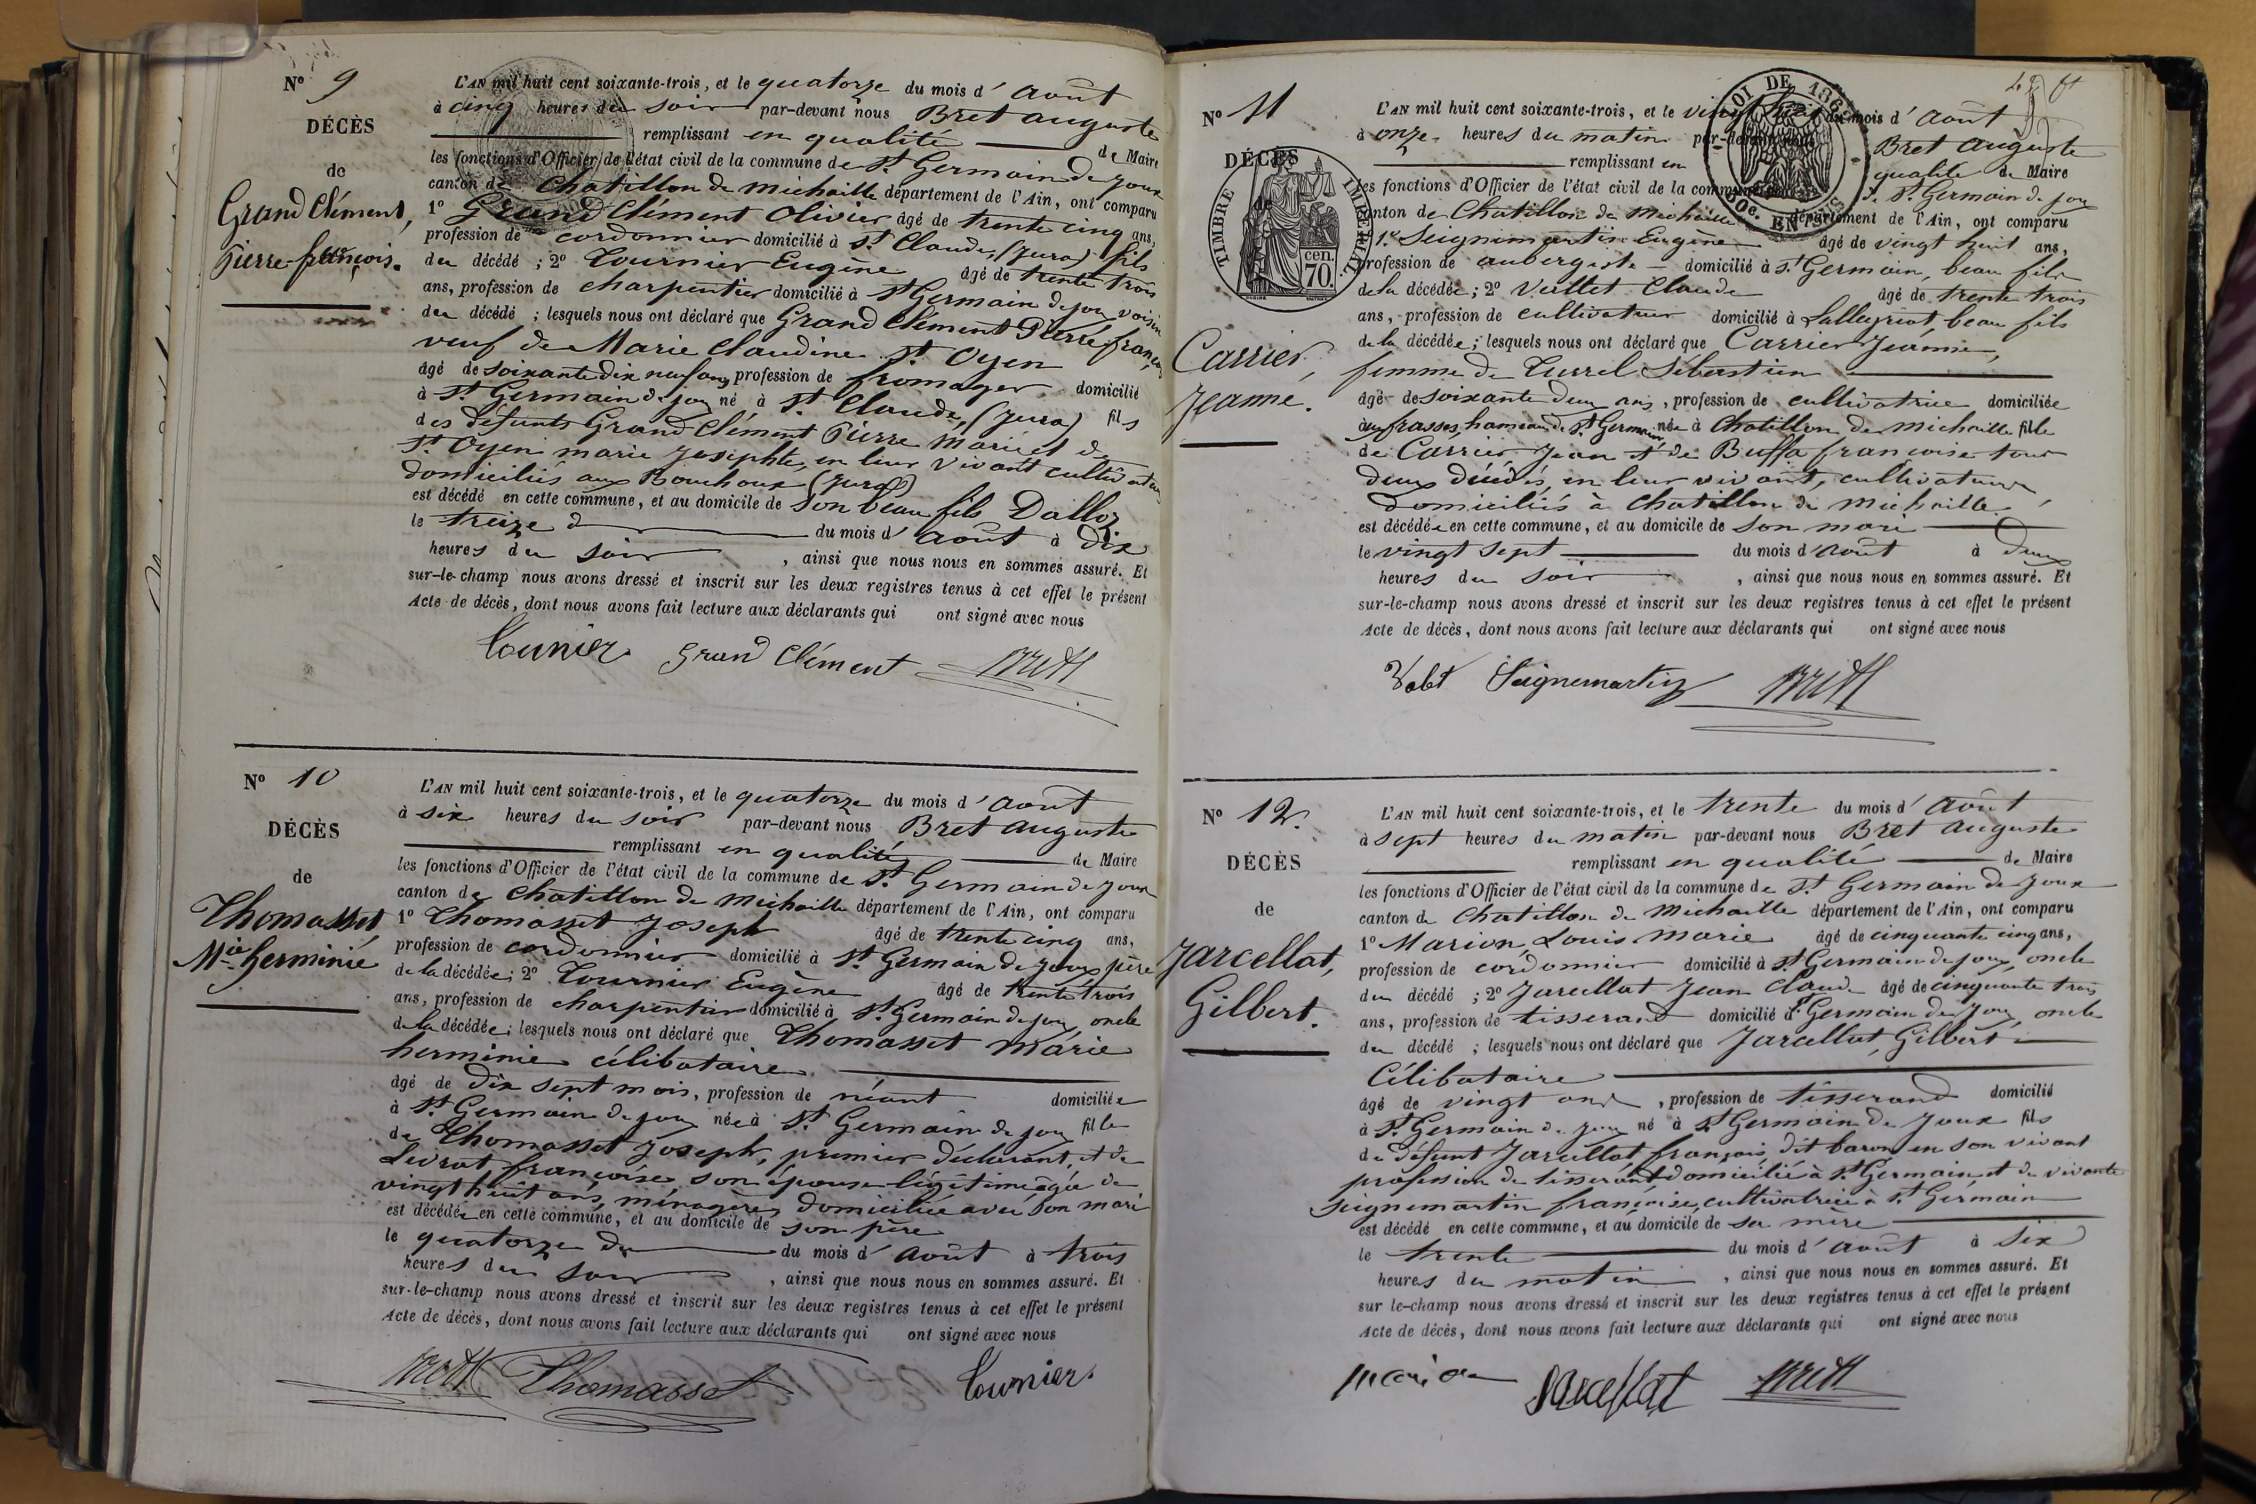 N° 9
DÉCÈS
de
Grand Clément,
Pierre-françois.
L'AN mil huit cent soixante-trois, et le quatorze du mois d'Août
à cinq heures du soir par-devant nous Bret Auguste
remplissant en qualité de Maire
les fonctions d'Officier de l'état civil de la commune de St Germain de Joux
canton de Chatillon de michaille département de l'Ain, ont comparu
1° Grand Clément Olivier âgé de trente cinq ans,
profession de cordonnier domicilié à St Claude, (jura) fils
du décédé ; 2° Tournier Eugène âgé de trente trois
ans, profession de charpentier domicilié à St Germain de joux voisin
du décédé ; lesquels nous ont déclaré que Grand Clément Pierre françois
veuf de Marie Claudine St Oyen
âgé de soixante dix neuf ans, profession de fromager domicilié
à St Germain de joux né à St Claude, (jura) fils
des défunts Grand Clément Pierre Marie et de
St Oyen marie josephte, en leur vivant cultivateurs
domiciliés aux Bouchoux (jura)
est décédé en cette commune, et au domicile de son beau fils Dalloz
le treize du mois d'Août à dix
heures du soir, ainsi que nous nous en sommes assuré. Et
sur-le-champ nous avons dressé et inscrit sur les deux registres tenus à cet effet le présent
Acte de décès, dont nous avons fait lecture aux déclarants qui ont signé avec nous
Tounier Grand Clément Bret
N° 10
DÉCÈS
de
Thomasset,
Mie Herminie
L'AN mil huit cent soixante-trois, et le quatorze du mois d'Août
à six heures du soir par-devant nous Bret Auguste
remplissant en qualité de Maire
les fonctions d'Officier de l'état civil de la commune de St Germain de Joux
canton de Chatillon de michaille département de l'Ain, ont comparu
1° Thomasset Joseph âgé de trente cinq ans,
profession de cordonnier domicilié à St Germain de joux père
de la décédée ; 2° Tournier Eugène âgé de trente trois
ans, profession de charpentier domicilié à St Germain de joux oncle
de la décédée ; lesquels nous ont déclaré que Thomasset Marie
herminie célibataire
âgé de dix sept mois, profession de néant domiciliée
à St Germain de joux née à St Germain de joux fille
de Thomasset Joseph, premier déclarant, et de
Livrat françoise son épouse légitime âgée de
vingt huit ans, ménagère, domiciliée avec son mari
est décédée en cette commune, et au domicile de son père
le quatorze du mois d'Août à trois
heures du soir, ainsi que nous nous en sommes assuré. Et
sur-le-champ nous avons dressé et inscrit sur les deux registres tenus à cet effet le présent
Acte de décès, dont nous avons fait lecture aux déclarants qui ont signé avec nous
Bret Thomasset Tounier
N° 11
DÉCÈS
de
TIMBRE IMPÉRIAL.
cen. 70.
LOI DE 1862
50e. EN SUS
Carrier,
Jeanne.
L'AN mil huit cent soixante-trois, et le vingt huit du mois d'Août
à onze heures du matin par-devant nous Bret Auguste
remplissant en qualité de Maire
les fonctions d'Officier de l'état civil de la commune de St Germain de joux
canton de Chatillon de michaille département de l'Ain, ont comparu
1° Seignemartin Eugène âgé de vingt huit ans,
profession de aubergiste domicilié à St Germain, beau fils
de la décédée ; 2° Vallet Claude âgé de trente trois
ans, profession de cultivateur domicilié à Lalleyriat, beau fils
de la décédée ; lesquels nous ont déclaré que Carrier Jeanne,
femme de Turrel Sébastien
âgé de soixante deux ans, profession de cultivatrice domiciliée
aux frasses, hameau de St Germain, née à Chatillon de michaille fille
de Carrier Jean et de Buffa françoise tous
deux décédés, en leur vivant, cultivateurs
domiciliés à Chatillon de Michaille.
est décédée en cette commune, et au domicile de son mari
le vingt sept du mois d'Août à deux
heures du soir, ainsi que nous nous en sommes assuré. Et
sur-le-champ nous avons dressé et inscrit sur les deux registres tenus à cet effet le présent
Acte de décès, dont nous avons fait lecture aux déclarants qui ont signé avec nous
Seignemartin Bret
N° 12.
DÉCÈS
de
Jarcellat,
Gilbert.
L'AN mil huit cent soixante-trois, et le trente du mois d'Août
à sept heures du matin par-devant nous Bret Auguste
remplissant en qualité de Maire
les fonctions d'Officier de l'état civil de la commune de St Germain de Joux
canton de Chatillon de Michaille département de l'Ain, ont comparu
1° Marion, Louis Marie âgé de cinquante cinq ans,
profession de cordonnier domicilié à St Germain de joux, oncle
du décédé ; 2° Jarcellat Jean Claude âgé de cinquante trois
ans, profession de tisserand domicilié à St Germain de Joux, oncle
du décédé ; lesquels nous ont déclaré que Jarcellat, Gilbert
Célibataire
âgé de vingt ans, profession de tisserand domicilié
à St Germain de joux né à St Germain de Joux fils
de défunt Jarcellat françois, dit baron en son vivant
profession de tisserand domicilié à St Germain et de vivante
Seignemartin françoise, cultivatrice à St Germain
est décédé en cette commune, et au domicile de sa mère
le trente du mois d'Août à six
heures du matin, ainsi que nous nous en sommes assuré. Et
sur le-champ nous avons dressé et inscrit sur les deux registres tenus à cet effet le présent
Acte de décès, dont nous avons fait lecture aux déclarants qui ont signé avec nous
Marion Jarcellat Bret